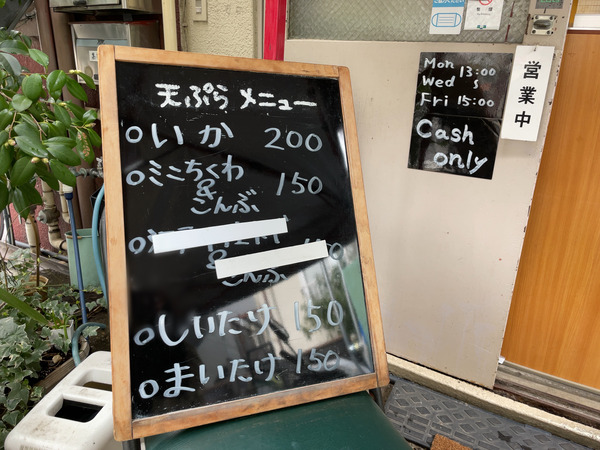 天ぷらメニュー
○いか 200
○ミニちくわ
&
こんぶ 150
&
こんぶ
○しいたけ 150
○まいたけ 150
Mon 13:00
Wed 〜
Fri 15:00
Cash
only
営業中